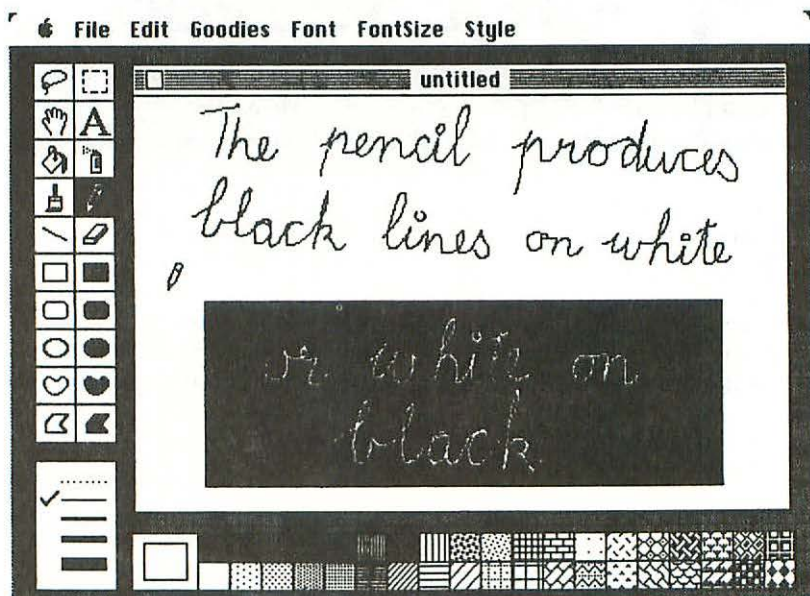 File Edit Goodies Font FontSize Style
untitled
A
The pencil produces
black lines on white
or white on
black